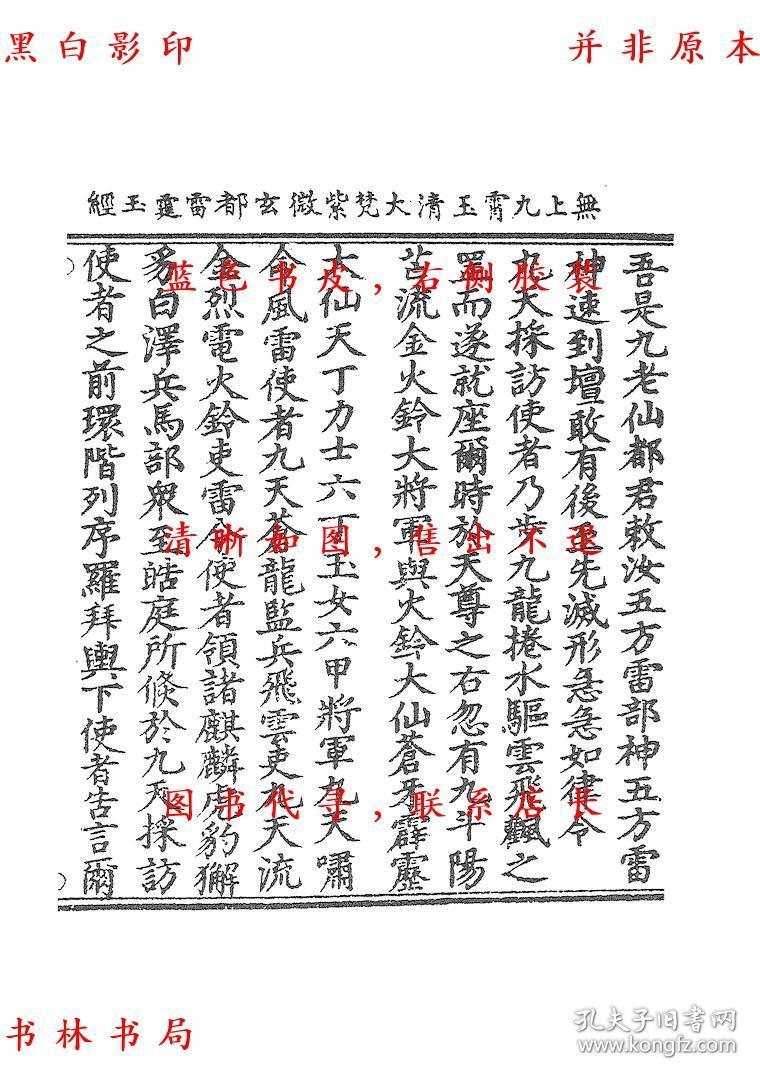 黑白影印
并非原本
無上九霄玉清大梵紫微玄都雷霆玉經
吾是九老仙都君敕汝五方雷部神五方雷
神速到壇敢有後至先滅形急急如律令
九天採訪使者乃步九龍捲水驅雲飛颿之
罡而遂就座爾時於天尊之右忽有九斗陽
芒流金火鈴大將軍與火鈴大仙蒼牙霹靂
大仙天丁力士六丁玉女六甲將軍九天嘯
命風雷使者九天蒼龍監兵飛雲吏九天流
金烈電火鈴吏雷令使者領諸麒麟虎豹獬
豸白澤兵馬部衆至皓庭所候於九天採訪
使者之前環階列序羅拜輿下使者告言爾
蓝色书皮，右侧胶装
清晰如图，售出不退
图书代寻，联系店长
书林书局
孔夫子旧书网
www.kongfz.com